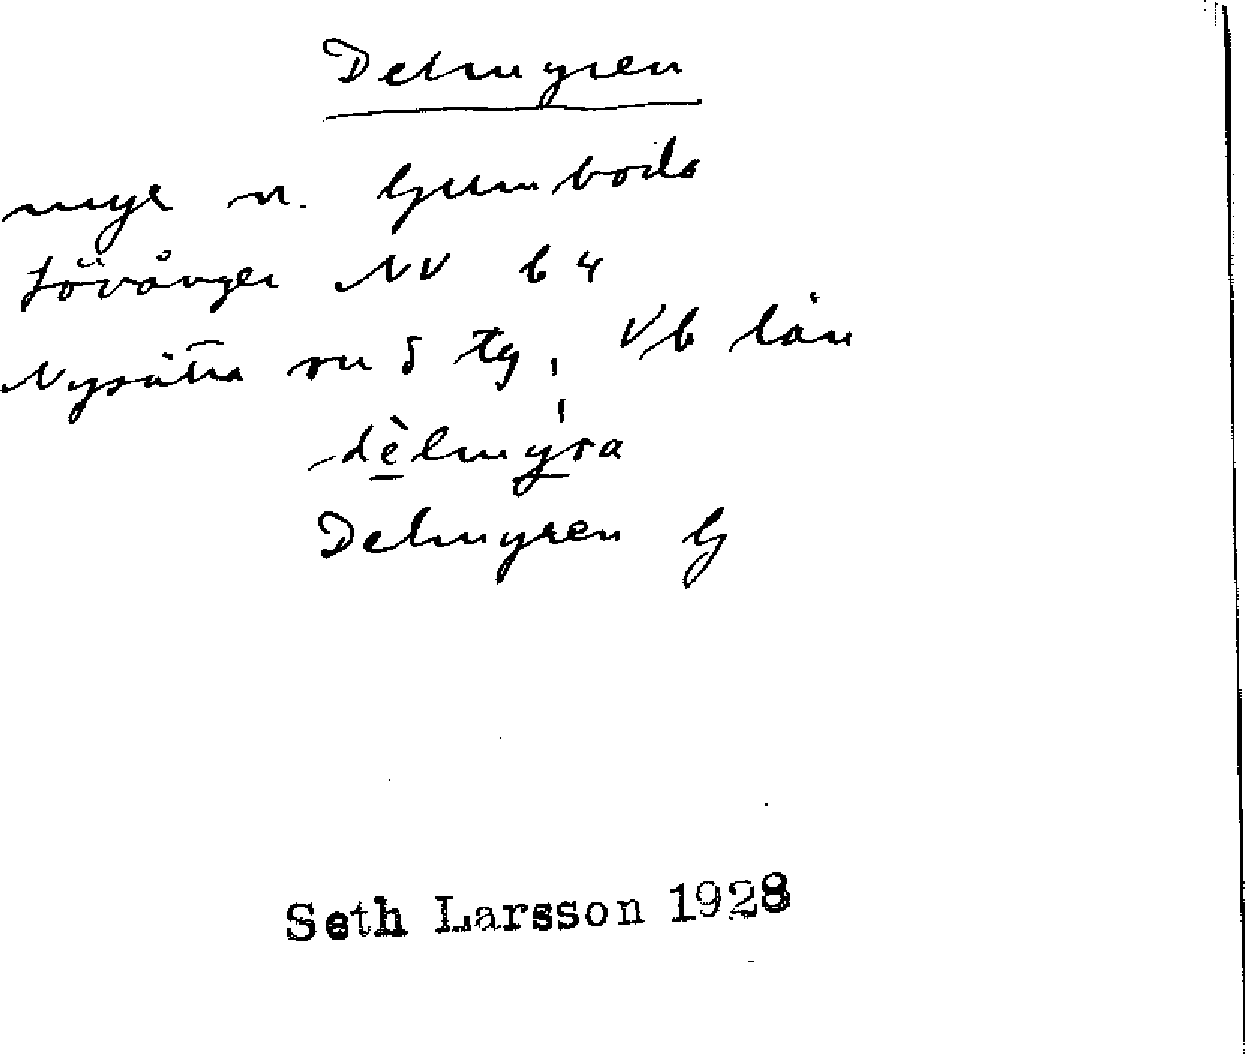 Delmyren
myr n. Gumboda
Lövånger NV b 4
Nysätra sn o tg, Vb län
dèlmýra
Delmyren G
Seth Larsson 1928